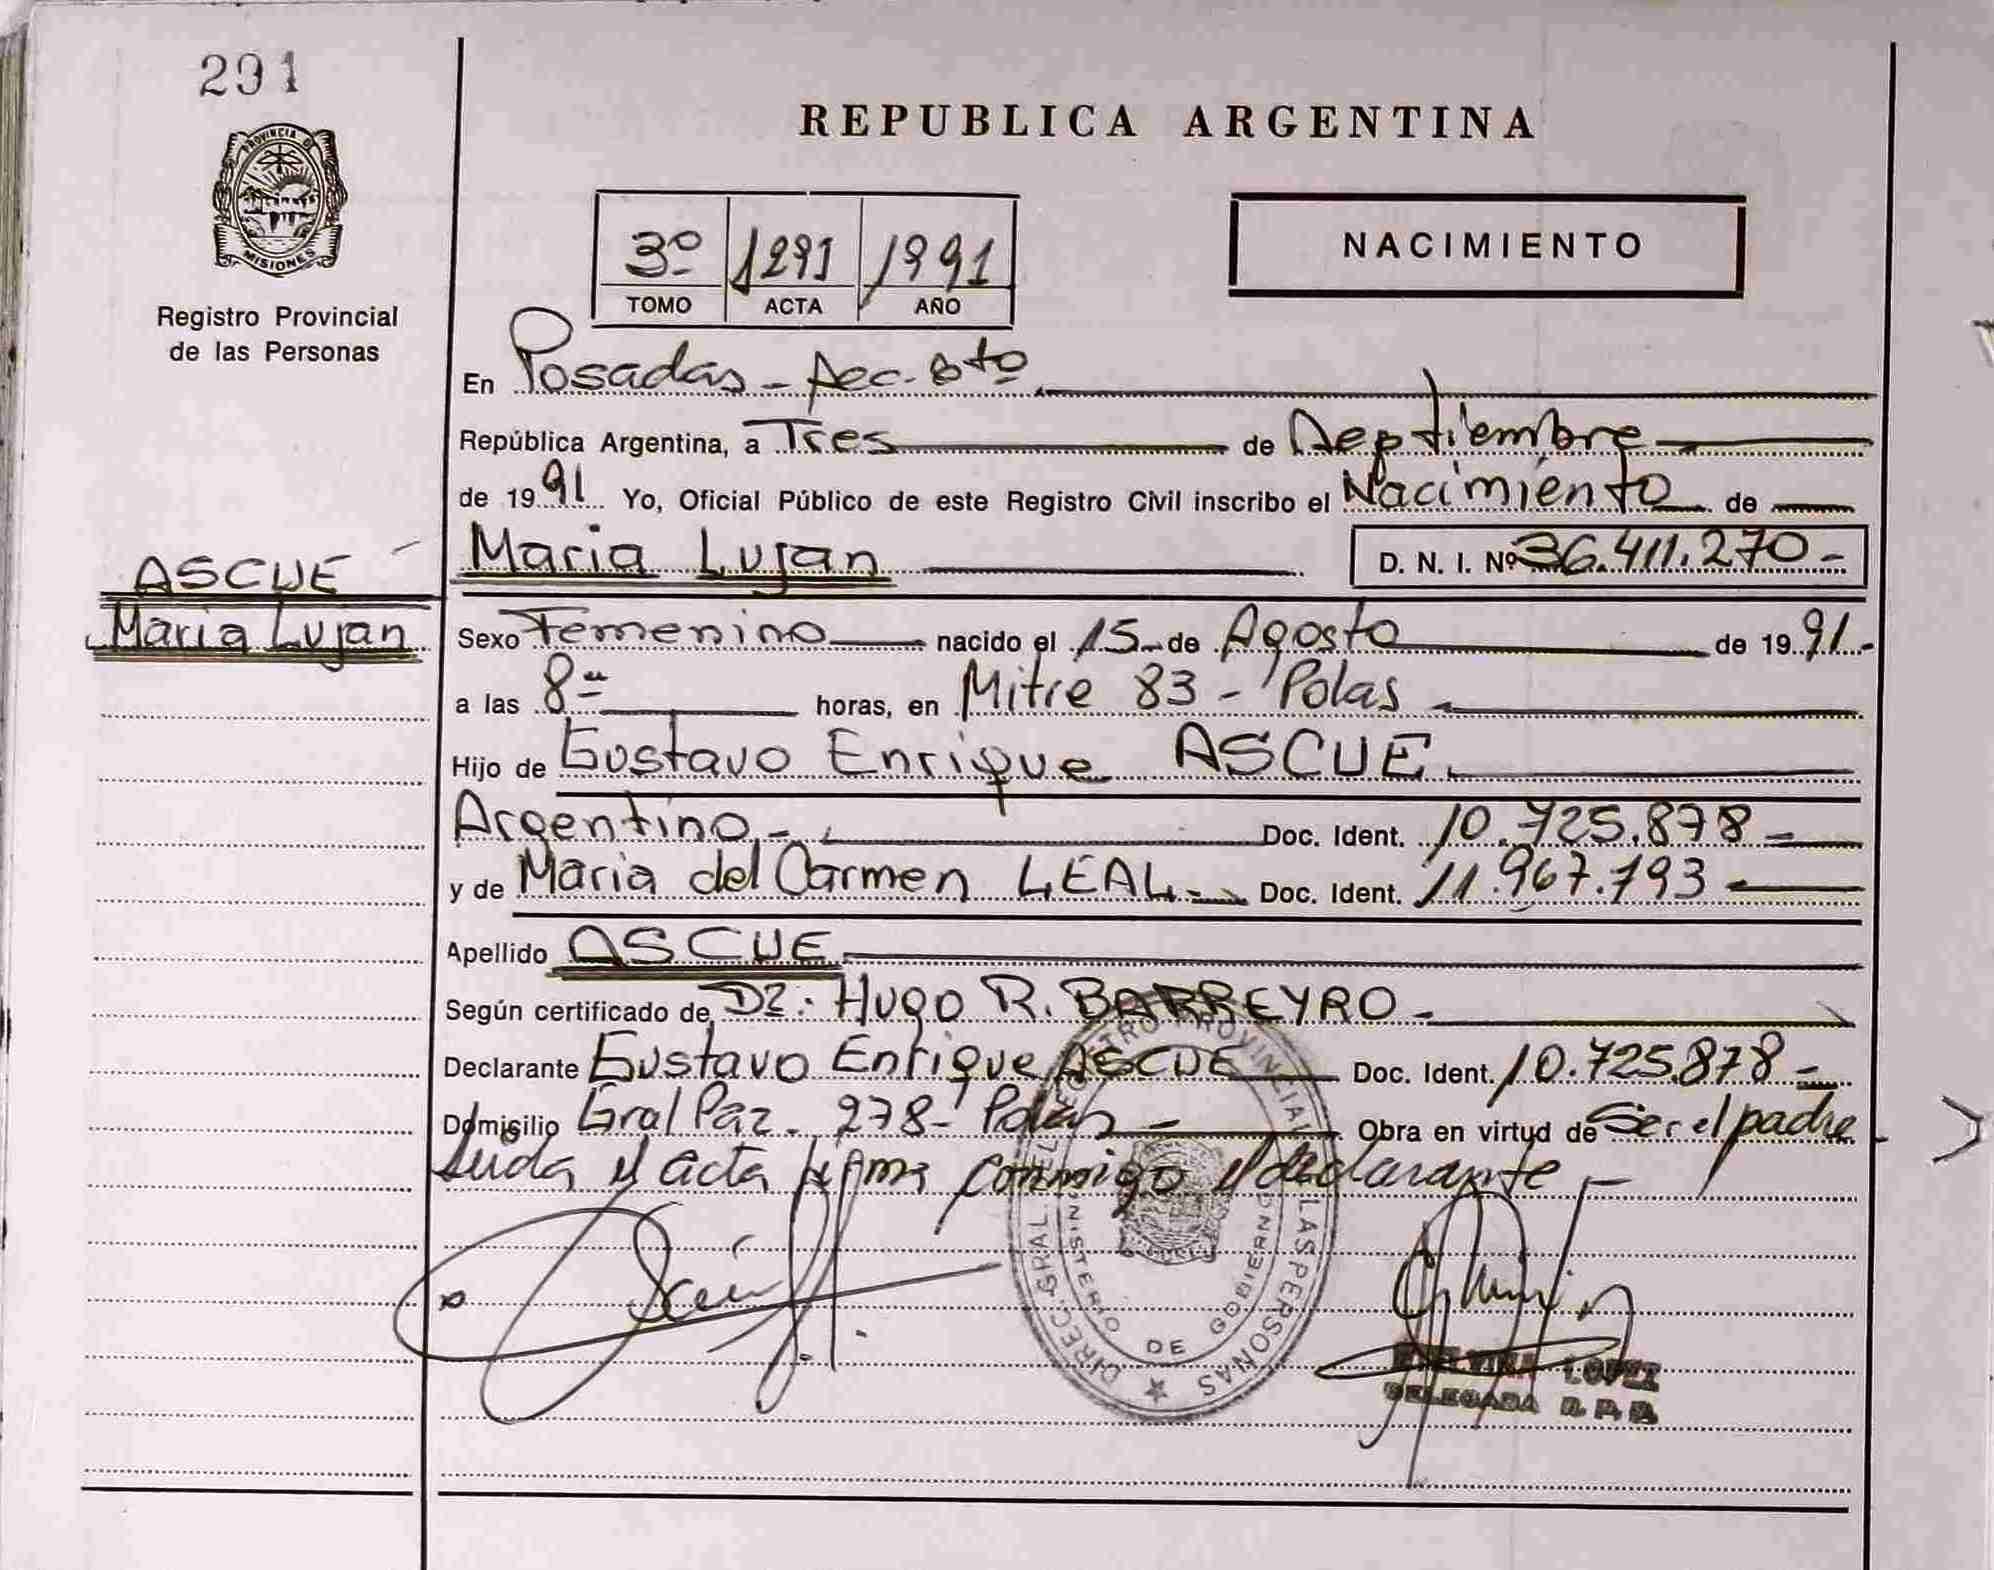 291
PROVINCIA DE
MISIONES
Registro Provincial
de las Personas
REPUBLICA ARGENTINA
3º 1291 1991
TOMO ACTA AÑO
NACIMIENTO
En Posadas - Sec. 8to
República Argentina, a Tres de Septiembre
de 1991 Yo, Oficial Público de este Registro Civil inscribo el Nacimiento de
ASCUE
Maria Lujan
Maria Lujan D. N. I. Nº 36.411.270-
Sexo Femenino nacido el 15 de Agosto de 1991-
a las 8 horas, en Mitre 83 - Pdas
Hijo de Gustavo Enrique ASCUE
Argentino - Doc. Ident. 10.725.878-
y de Maria del Carmen LEAL - Doc. Ident. 11.967.793-
Apellido ASCUE
Según certificado de Dr. Hugo R. BARREYRO-
Declarante Gustavo Enrique ASCUE Doc. Ident. 10.725.878-
Domicilio Gral Paz - 278- Pdas - Obra en virtud de Ser el padre
Leida el acta firma conmigo el declarante -
DIREC. GRAL. DEL REGISTRO PROVINCIAL DE LAS PERSONAS
MINISTERIO DE GOBIERNO
LOPEZ
DELEGADA R. P. P.